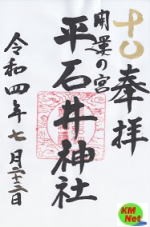 奉拝
開運の宮
平石井神社
令和四年七月二十三日
KM
Net